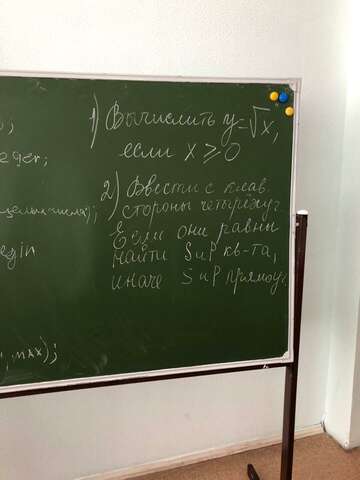 ;
eger;
целых числа);
egin
, max);
1) Вычислить y=√x,
если x ⩾ 0
2) Ввести с клав.
стороны четырёхуг.
Если они равны
найти S и P кв-та,
иначе S и P прямоуг.